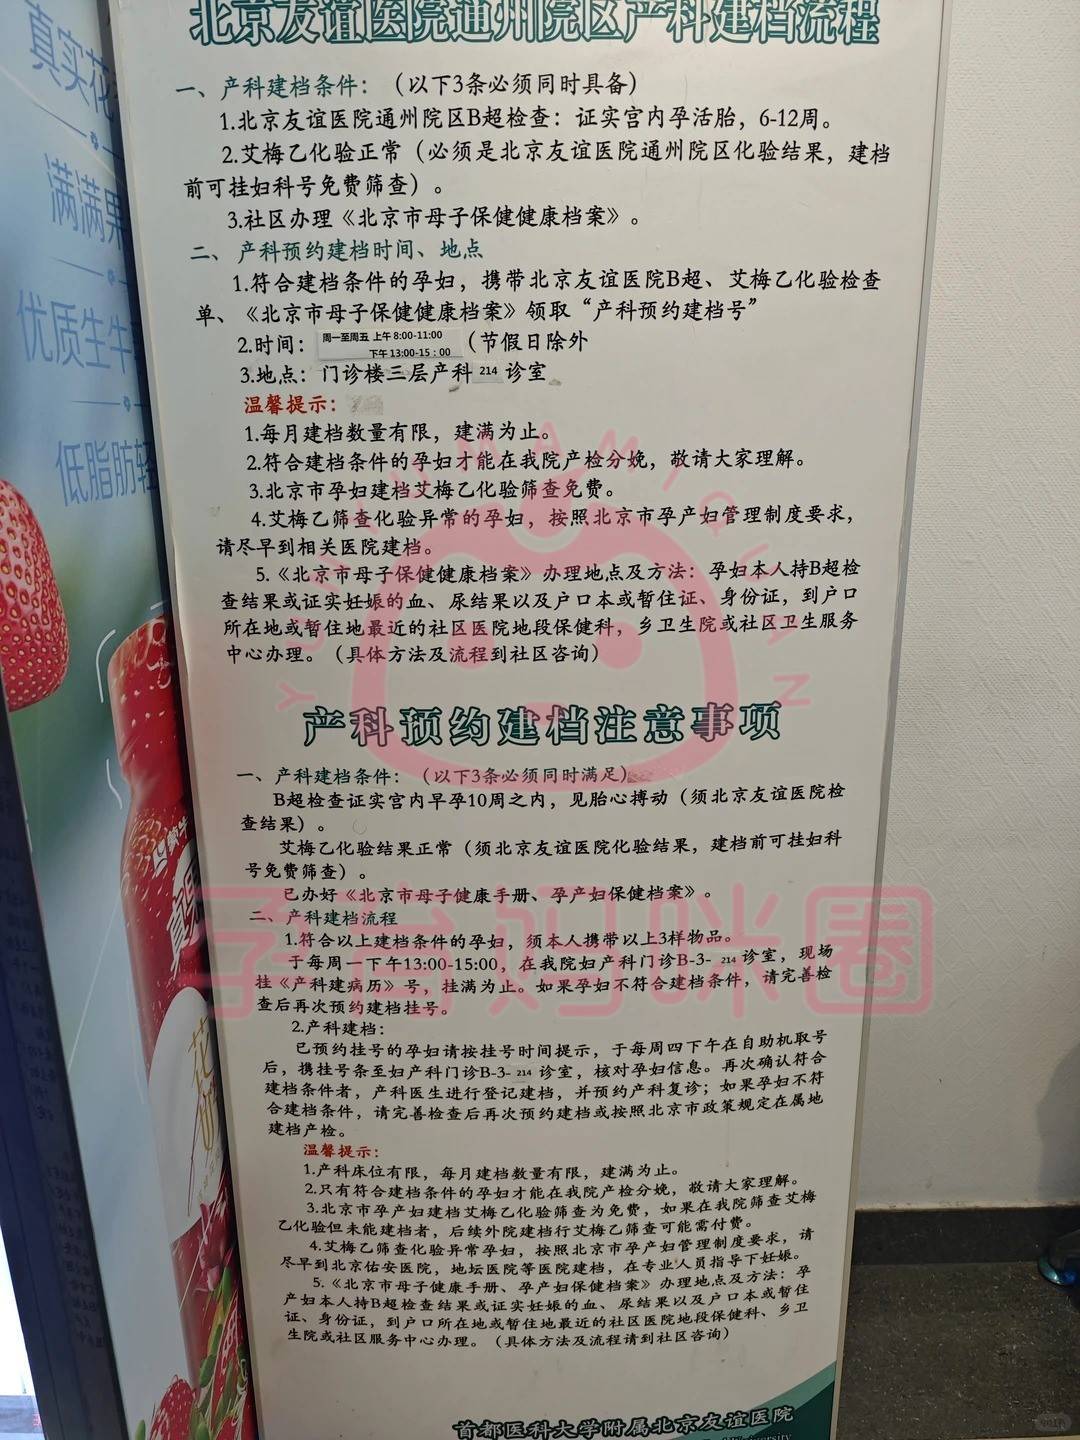 北京友谊医院通州院区产科建档流程
一、产科建档条件：（以下3条必须同时具备）
1.北京友谊医院通州院区B超检查：证实宫内孕活胎，6-12周。
2.艾梅乙化验正常（必须是北京友谊医院通州院区化验结果，建档
前可挂妇科号免费筛查）。
3.社区办理《北京市母子保健健康档案》。
二、产科预约建档时间、地点
1.符合建档条件的孕妇，携带北京友谊医院B超、艾梅乙化验检查
单、《北京市母子保健健康档案》领取“产科预约建档号”
2.时间：周一至周五 上午 8:00-11:00
下午 13:00-15：00（节假日除外
3.地点：门诊楼三层产科 214 诊室
温馨提示：
1.每月建档数量有限，建满为止。
2.符合建档条件的孕妇才能在我院产检分娩，敬请大家理解。
3.北京市孕妇建档艾梅乙化验筛查免费。
4.艾梅乙筛查化验异常的孕妇，按照北京市孕产妇管理制度要求，
请尽早到相关医院建档。
5.《北京市母子保健健康档案》办理地点及方法：孕妇本人持B超检
查结果或证实妊娠的血、尿结果以及户口本或暂住证、身份证，到户口
所在地或暂住地最近的社区医院地段保健科，乡卫生院或社区卫生服务
中心办理。（具体方法及流程到社区咨询）
产科预约建档注意事项
一、产科建档条件：（以下3条必须同时满足）
B超检查证实宫内早孕10周之内，见胎心搏动（须北京友谊医院检
查结果）。
艾梅乙化验结果正常（须北京友谊医院化验结果，建档前可挂妇科
号免费筛查）。
已办好《北京市母子健康手册、孕产妇保健档案》。
二、产科建档流程
1.符合以上建档条件的孕妇，须本人携带以上3样物品。
于每周一下午13:00-15:00，在我院妇产科门诊B-3- 214 诊室，现场
挂《产科建病历》号，挂满为止。如果孕妇不符合建档条件，请完善检
查后再次预约建档挂号。
2.产科建档：
已预约挂号的孕妇请按挂号时间提示，于每周四下午在自助机取号
后，携挂号条至妇产科门诊B-3- 214 诊室，核对孕妇信息。再次确认符合
建档条件者，产科医生进行登记建档，并预约产科复诊；如果孕妇不符
合建档条件，请完善检查后再次预约建档或按照北京市政策规定在属地
建档产检。
温馨提示：
1.产科床位有限，每月建档数量有限，建满为止。
2.只有符合建档条件的孕妇才能在我院产检分娩，敬请大家理解。
3.北京市孕产妇建档艾梅乙化验筛查为免费，如果在我院筛查艾梅
乙化验但未能建档者，后续外院建档行艾梅乙筛查可能需付费。
4.艾梅乙筛查化验异常孕妇，按照北京市孕产妇管理制度要求，请
尽早到北京佑安医院，地坛医院等医院建档，在专业人员指导下妊娠。
5.《北京市母子健康手册、孕产妇保健档案》办理地点及方法：孕
产妇本人持B超检查结果或证实妊娠的血、尿结果以及户口本或暂住
证、身份证，到户口所在地或暂住地最近的社区医院地段保健科、乡卫
生院或社区服务中心办理。（具体方法及流程请到社区咨询）
首都医科大学附属北京友谊医院
真实花
满满果
优质生牛
低脂肪轻
孕育妈咪圈
YUNYUMAMIQUAN